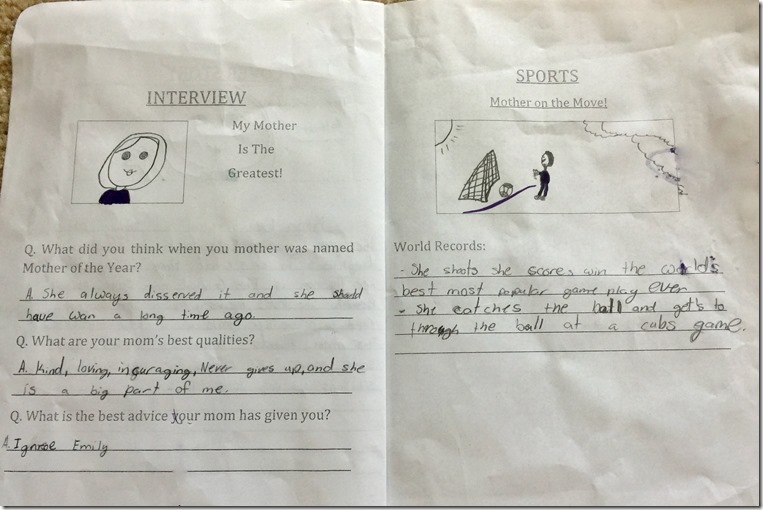 INTERVIEW
My Mother
Is The
Greatest!
Q. What did you think when you mother was named
Mother of the Year?
A. She always disserved it and she should
have won a long time ago.
Q. What are your mom's best qualities?
A. Kind, loving, inguraging, Never gives up, and she
is a big part of me.
Q. What is the best advice your mom has given you?
A. Ignroe Emily
SPORTS
Mother on the Move!
World Records:
- She shoots she scores, win the world's
best most popular game play ever
- She catches the ball and get's to
through the ball at a cubs game.